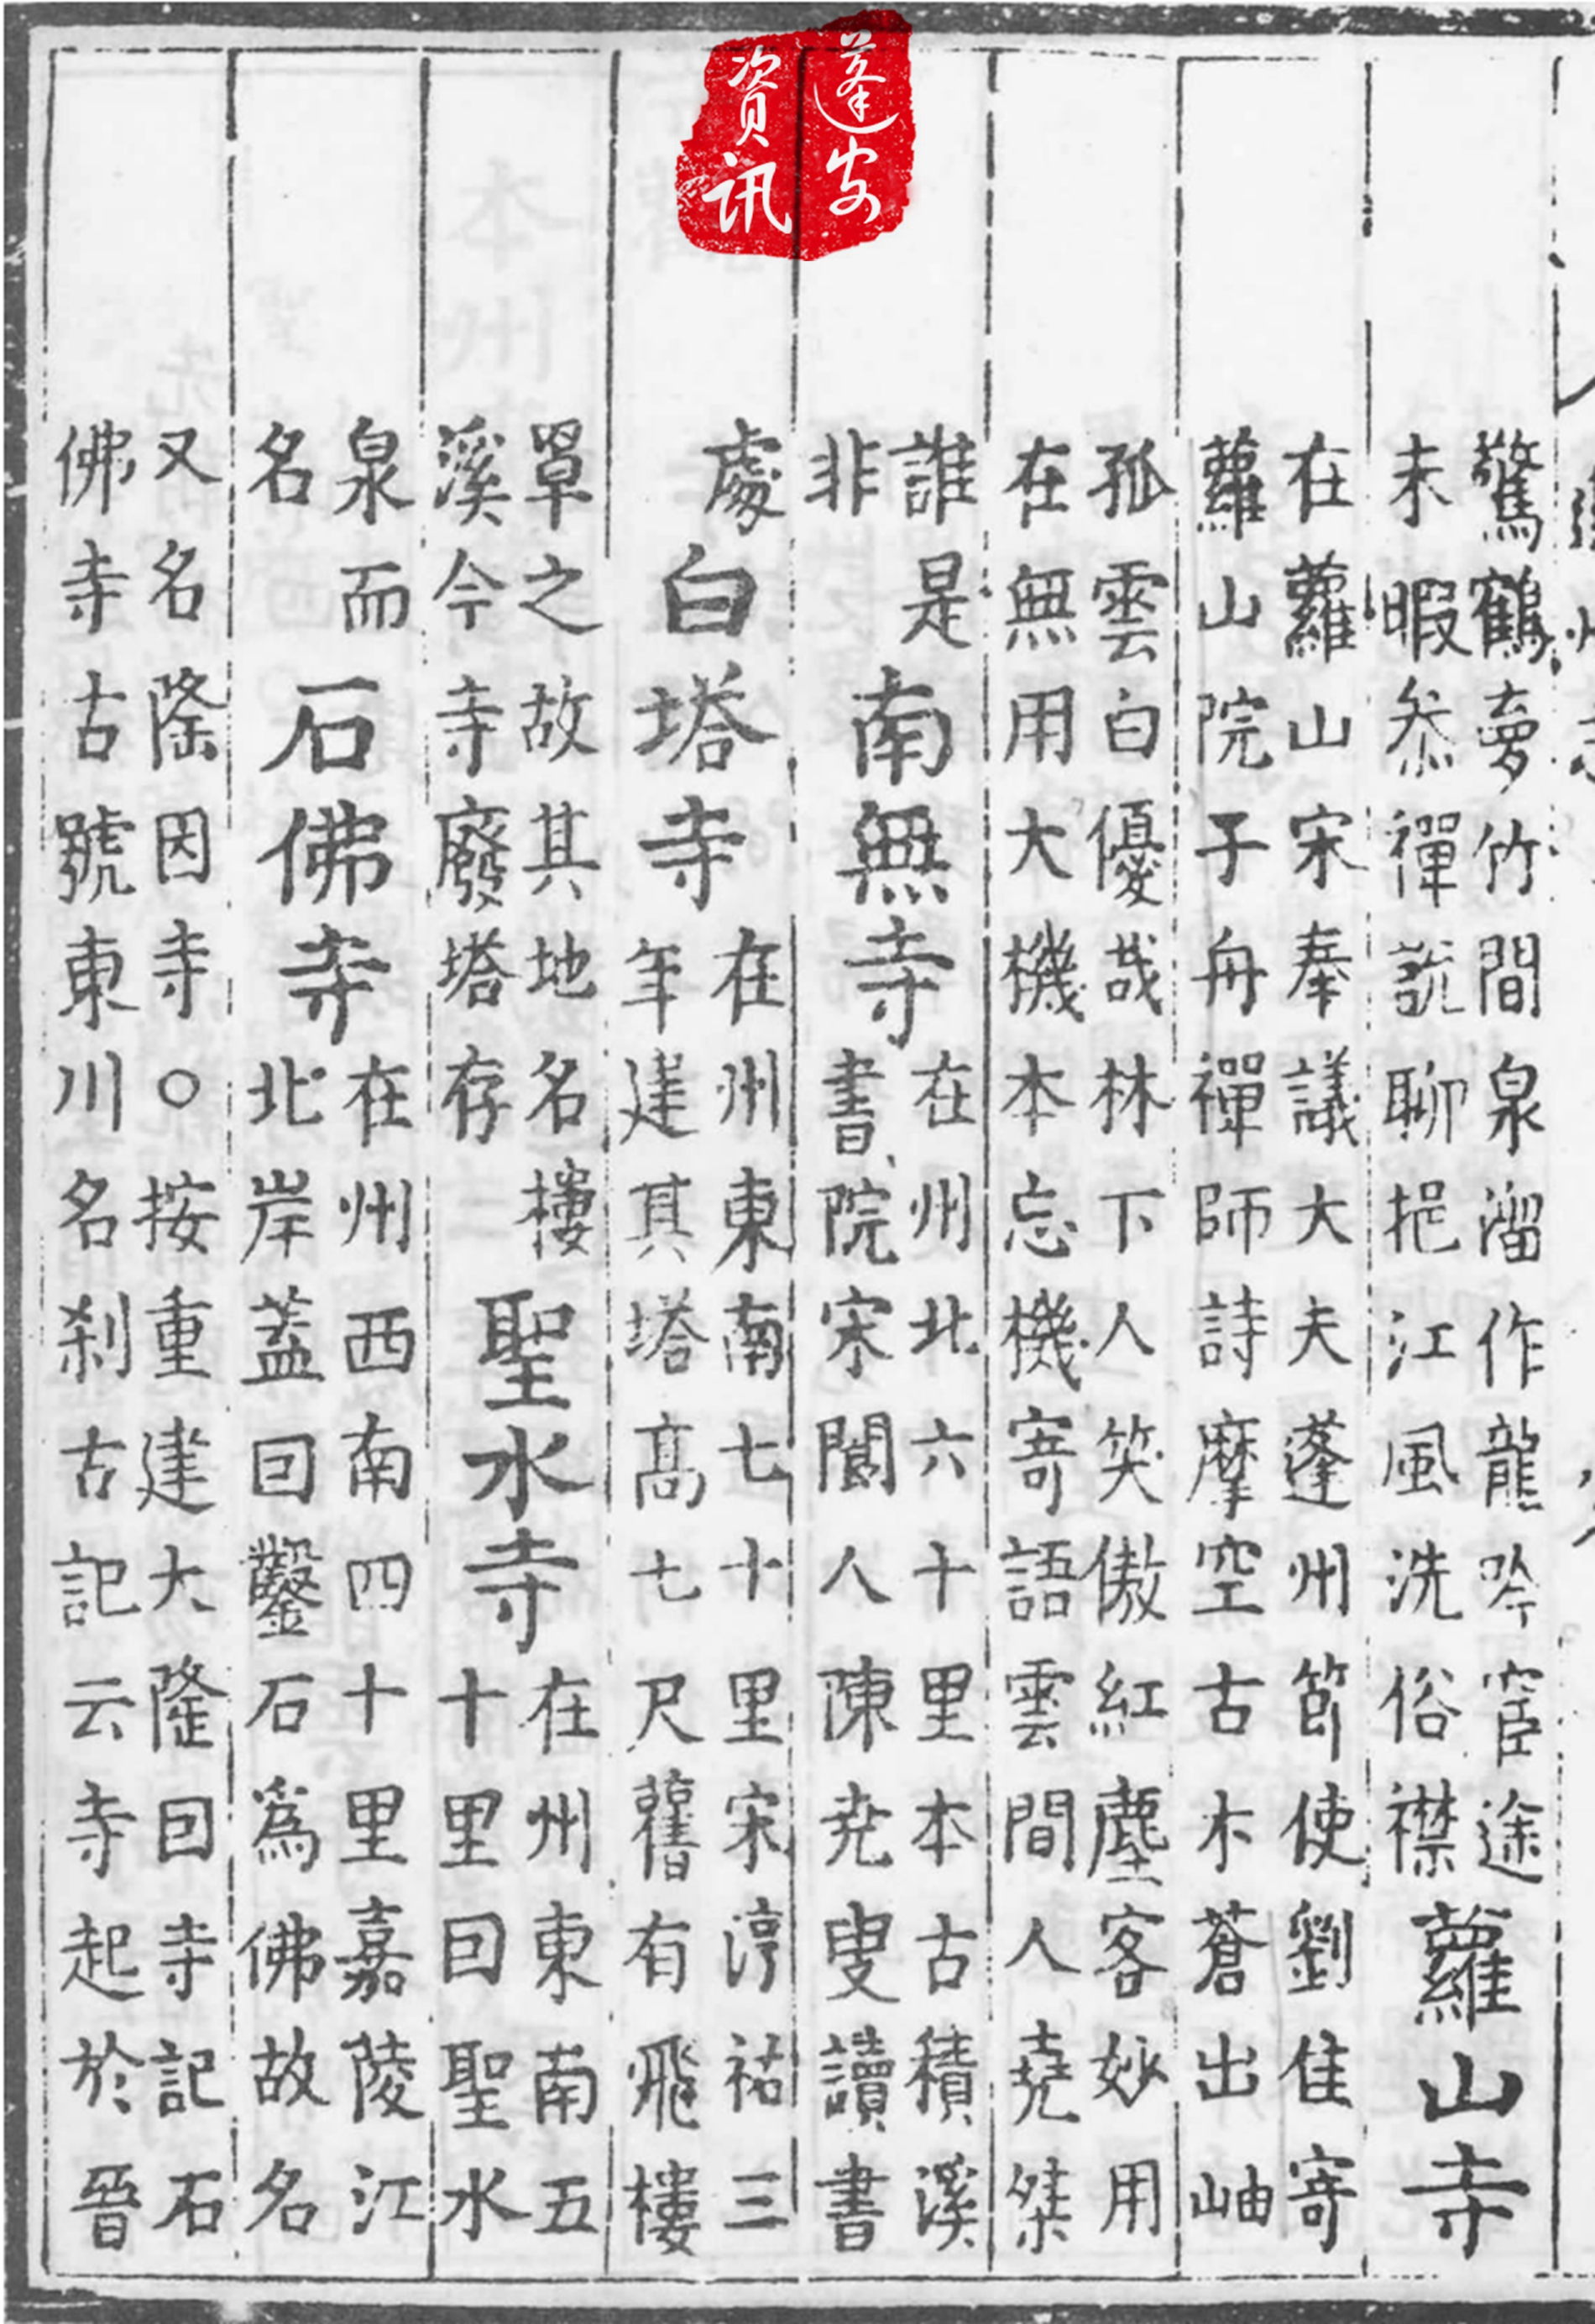 驚鶴夢竹間泉溜作龍吟宦途
未暇叅禪説聊挹江風洗俗襟
蘿山寺
在蘿山宋奉議大夫蓬州節使劉隹寄
蘿山院子舟禪師詩摩空古木蒼出岫
孤雲白優哉林下人笑傲紅塵客妙用
在無用大機本忘機寄語雲間人堯桀
誰是
非
南無寺
在州北六十里本古積溪
書院宋閬人陳尭叟讀書
處
白塔寺
在州東南七十里宋淳祐三
年建其塔高七尺舊有飛樓
罩之故其地名樓
溪今寺廢塔存
聖水寺
在州東南五
十里曰聖水
泉而
名
石佛寺
在州西南四十里嘉陵江
北岸蓋曰鑿石爲佛故名
又名隆因寺○按重建大隆曰寺記石
佛寺古號東川名刹古記云寺起於晉
蓬安
資訊